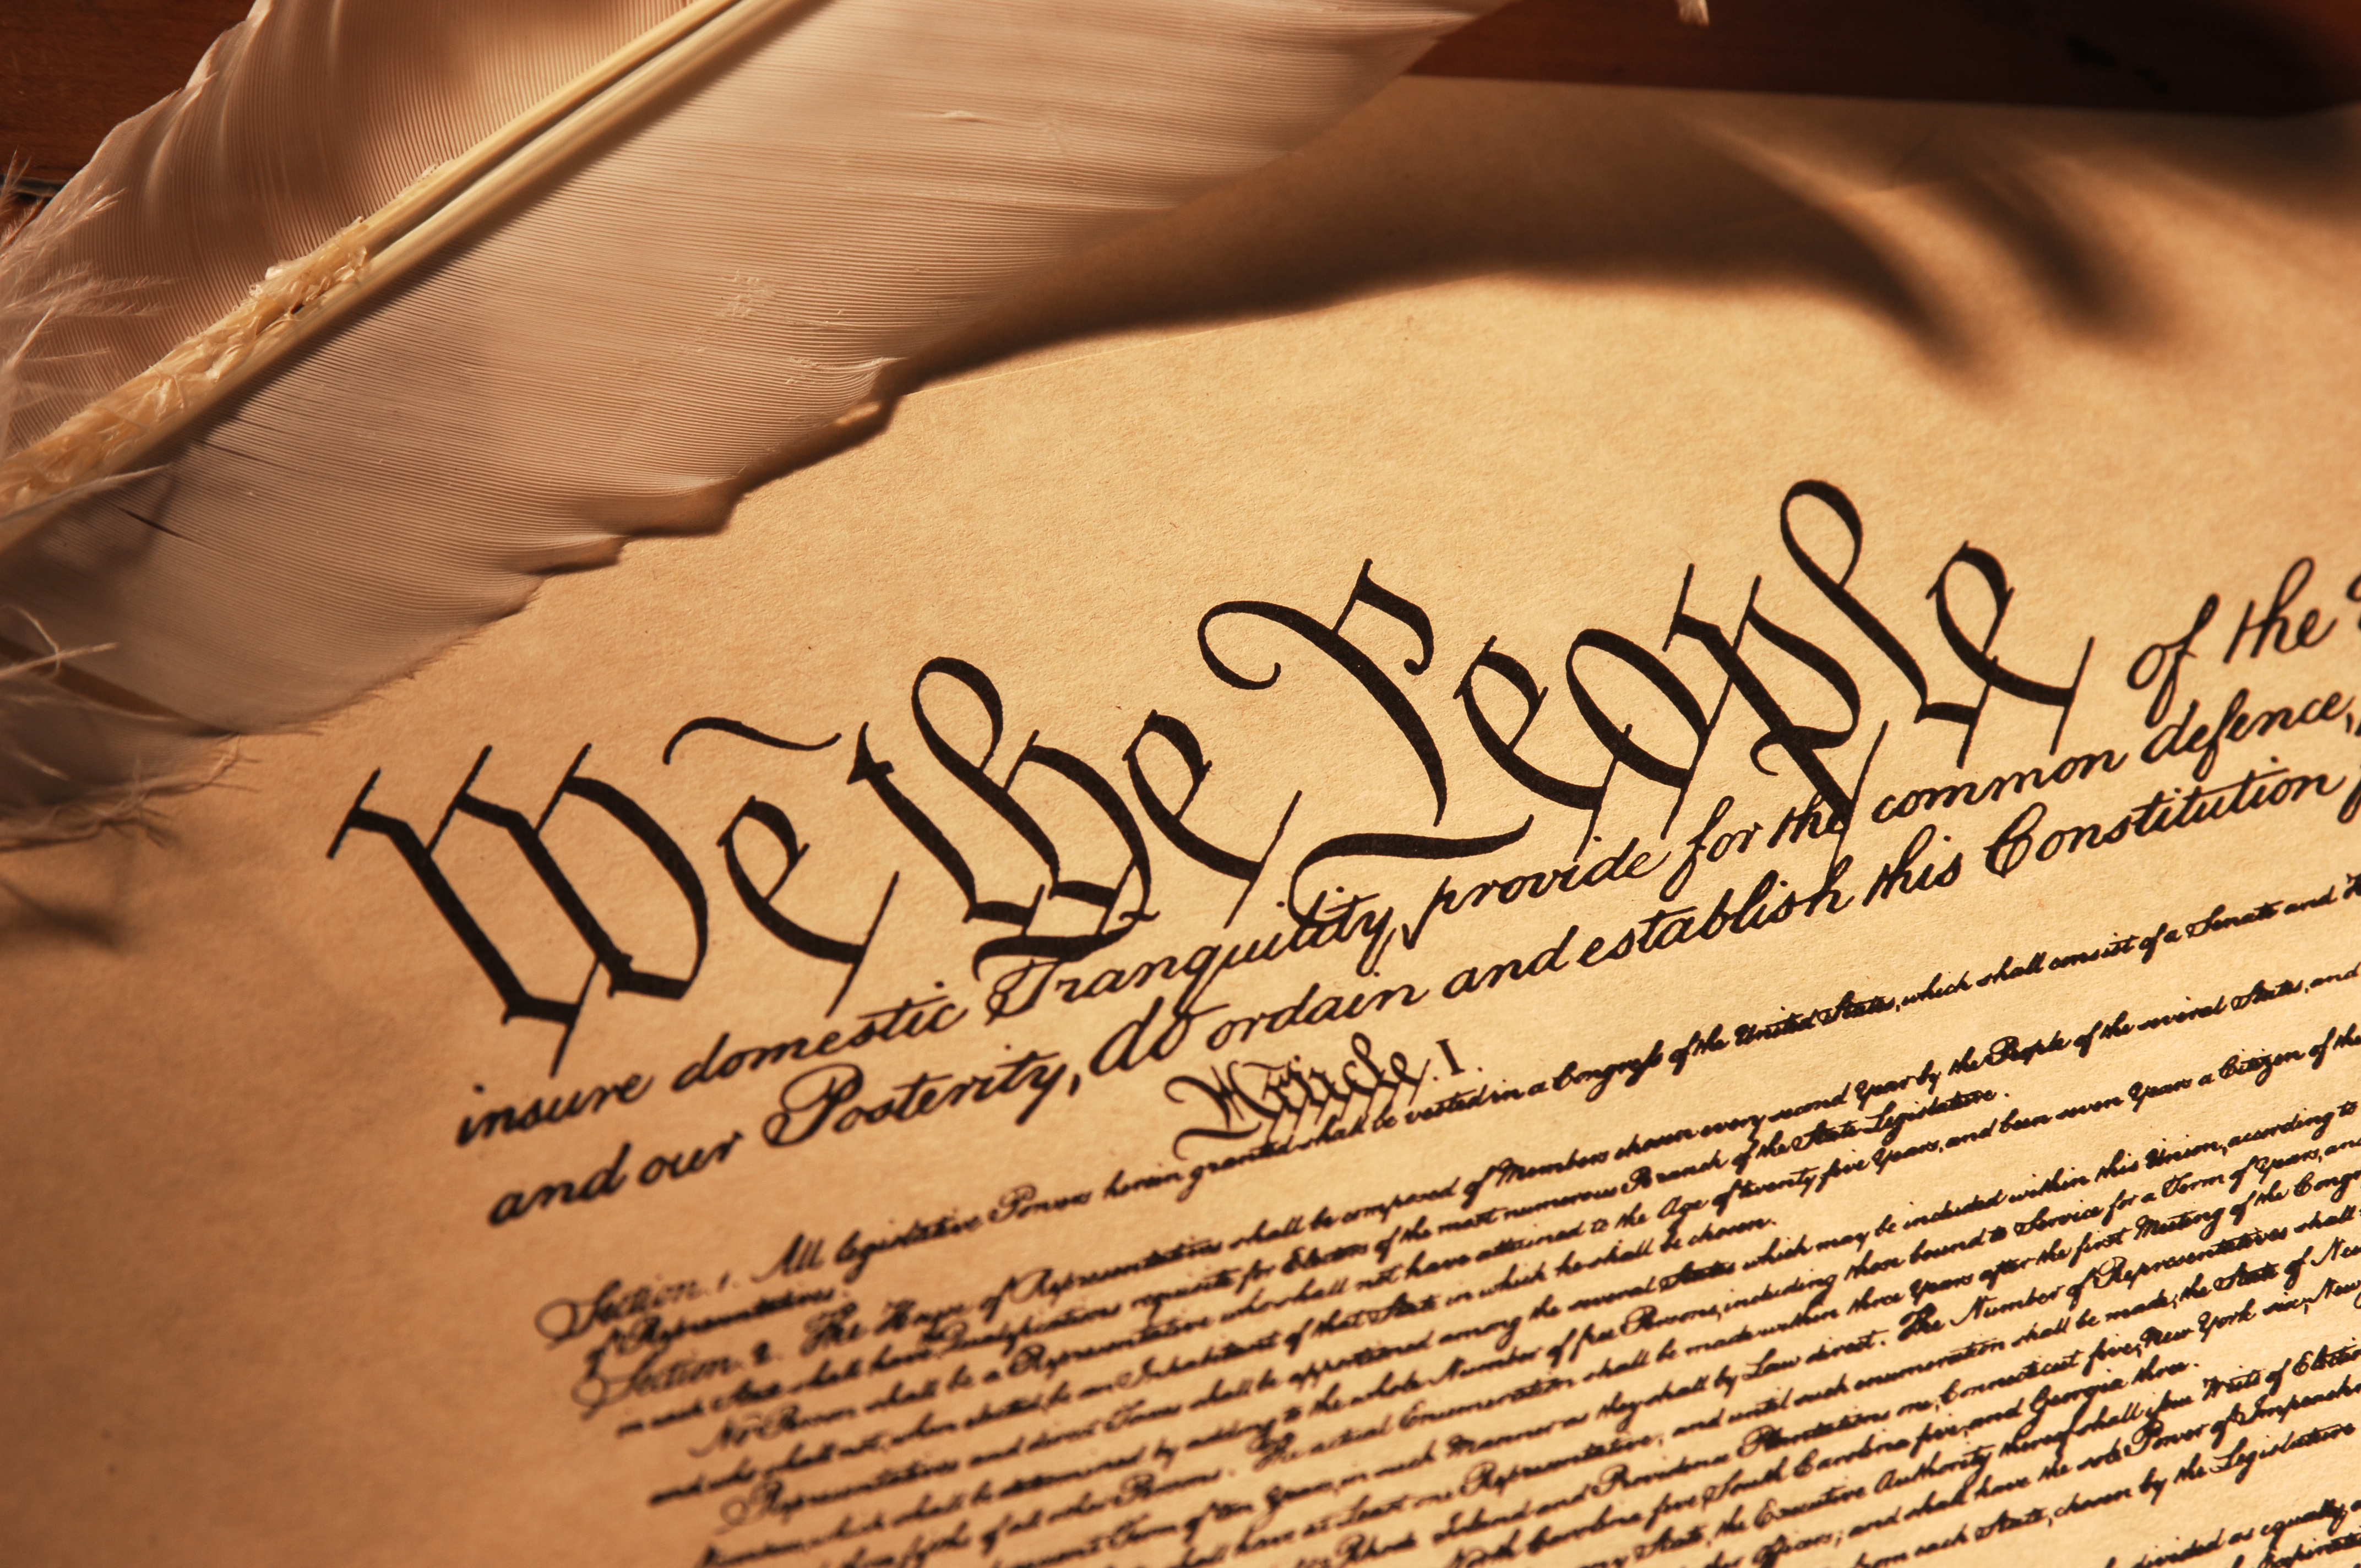 We the People of the
insure domestic Tranquility, provide for the common defence,
and our Posterity, do ordain and establish this Constitution
Article. I.
Section. 1. All legislative Powers herein granted shall be vested in a Congress of the United States, which shall consist of a Senate and
of Representatives.
Section. 2. The House of Representatives shall be composed of Members chosen every second Year by the People of the several States, and
in each State shall have Qualifications requisite for Electors of the most numerous Branch of the State Legislature.
No Person shall be a Representative who shall not have attained to the Age of twenty five Years, and been seven Years a Citizen of the
and who shall not, when elected, be an Inhabitant of that State in which he shall be chosen.
Representatives and direct Taxes shall be apportioned among the several States which may be included within this Union, according to
Numbers, which shall be determined by adding to the whole Number of free Persons, including those bound to Service for a Term of Years, and
fifths of all other Persons. The actual Enumeration shall be made within three Years after the first Meeting of the Congr
Term of ten Years, in such Manner as they shall by Law direct. The Number of Representatives shall
shall have at Least one Representative; and until such enumeration shall be made, the State of New
Rhode Island and Providence Plantations one, Connecticut five, New York six, New
North Carolina five, South Carolina five, and Georgia three.
State, the Executive Authority thereof shall issue Writs of Election
other Officers; and shall have the sole Power of Impeachm
from each State, chosen by the Legislature
divided as equally